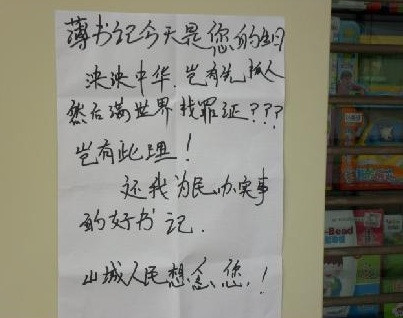 薄书记今天是您的生日
泱泱中华,岂有先抓人
然后满世界找罪证???
岂有此理!
还我为民办实事
的好书记.
山城人民想念您!
-Bead